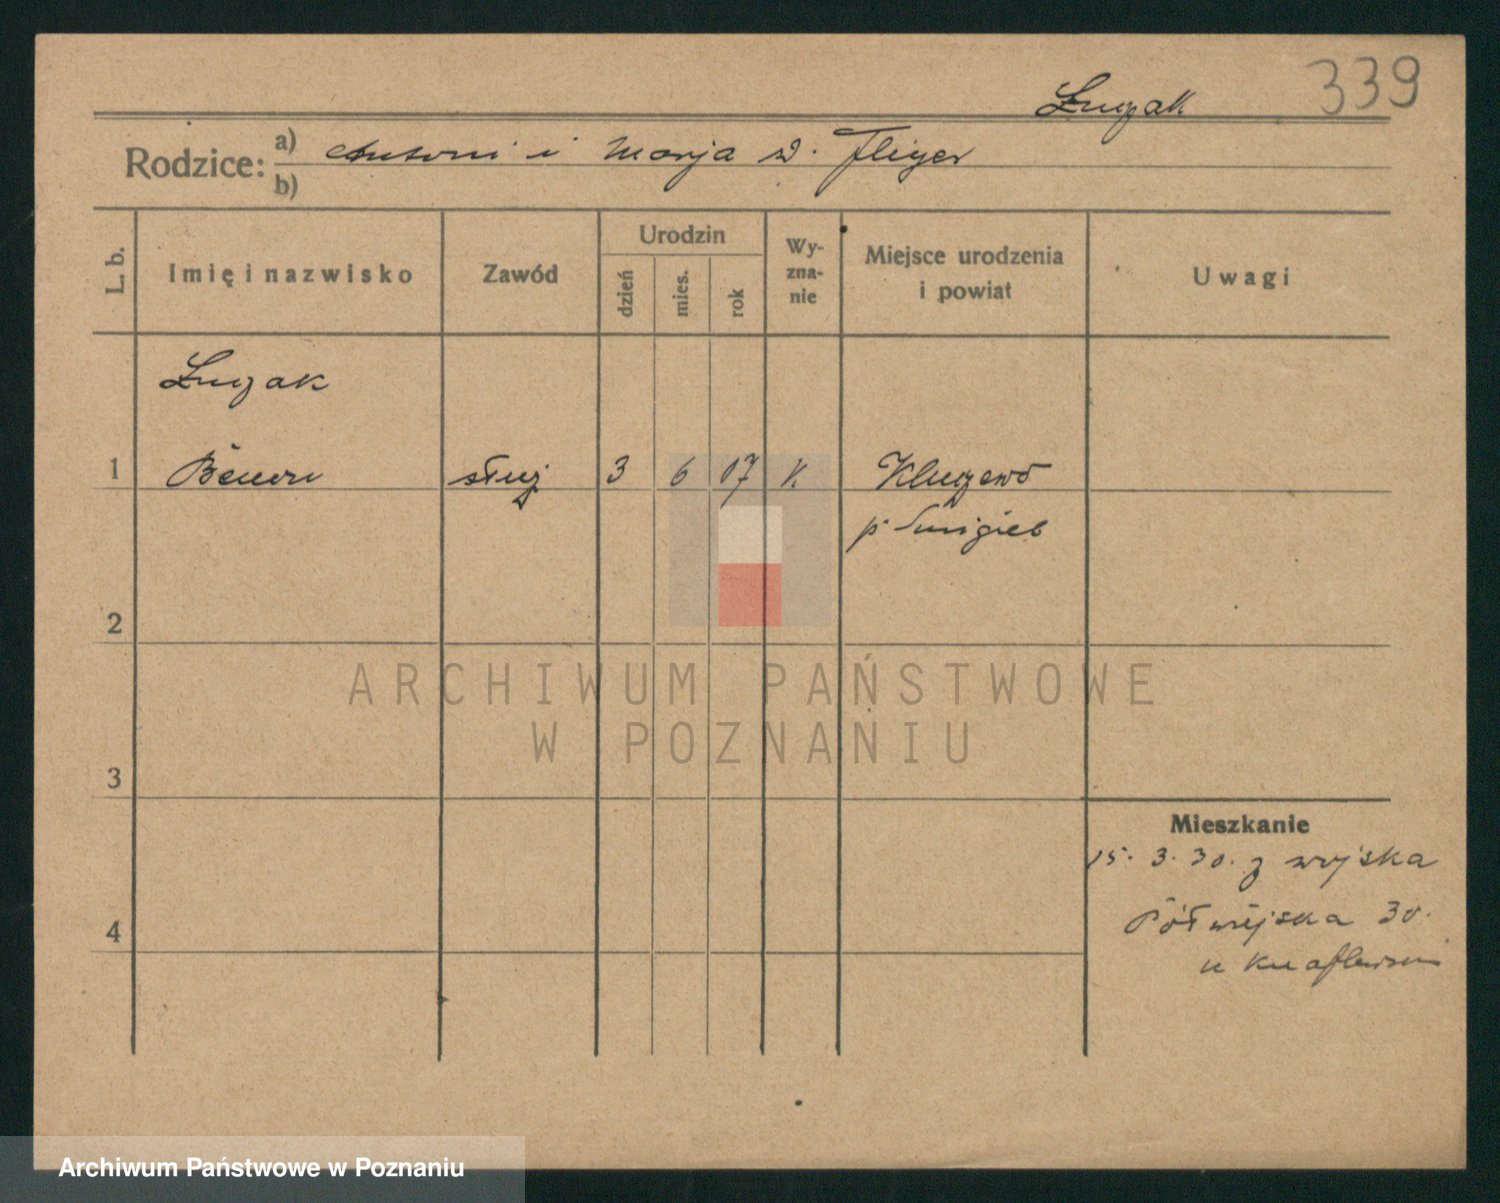 339
Łuczak
Rodzice: a) Antoni i Marja z d. Fliger
b)
L. b.
Imię i nazwisko
Zawód
Urodzin
dzień
mies.
rok
Wy-
zna-
nie
Miejsce urodzenia
i powiat
Uwagi
Łuczak
1 Benon służ 3 6 07 k. Kluczewo
p. Śmigiel
2
3
4
Mieszkanie
15. 3. 30. z wojska
Półwiejska 30.
u
ARCHIWUM PAŃSTWOWE
W POZNANIU
Archiwum Państwowe w Poznaniu